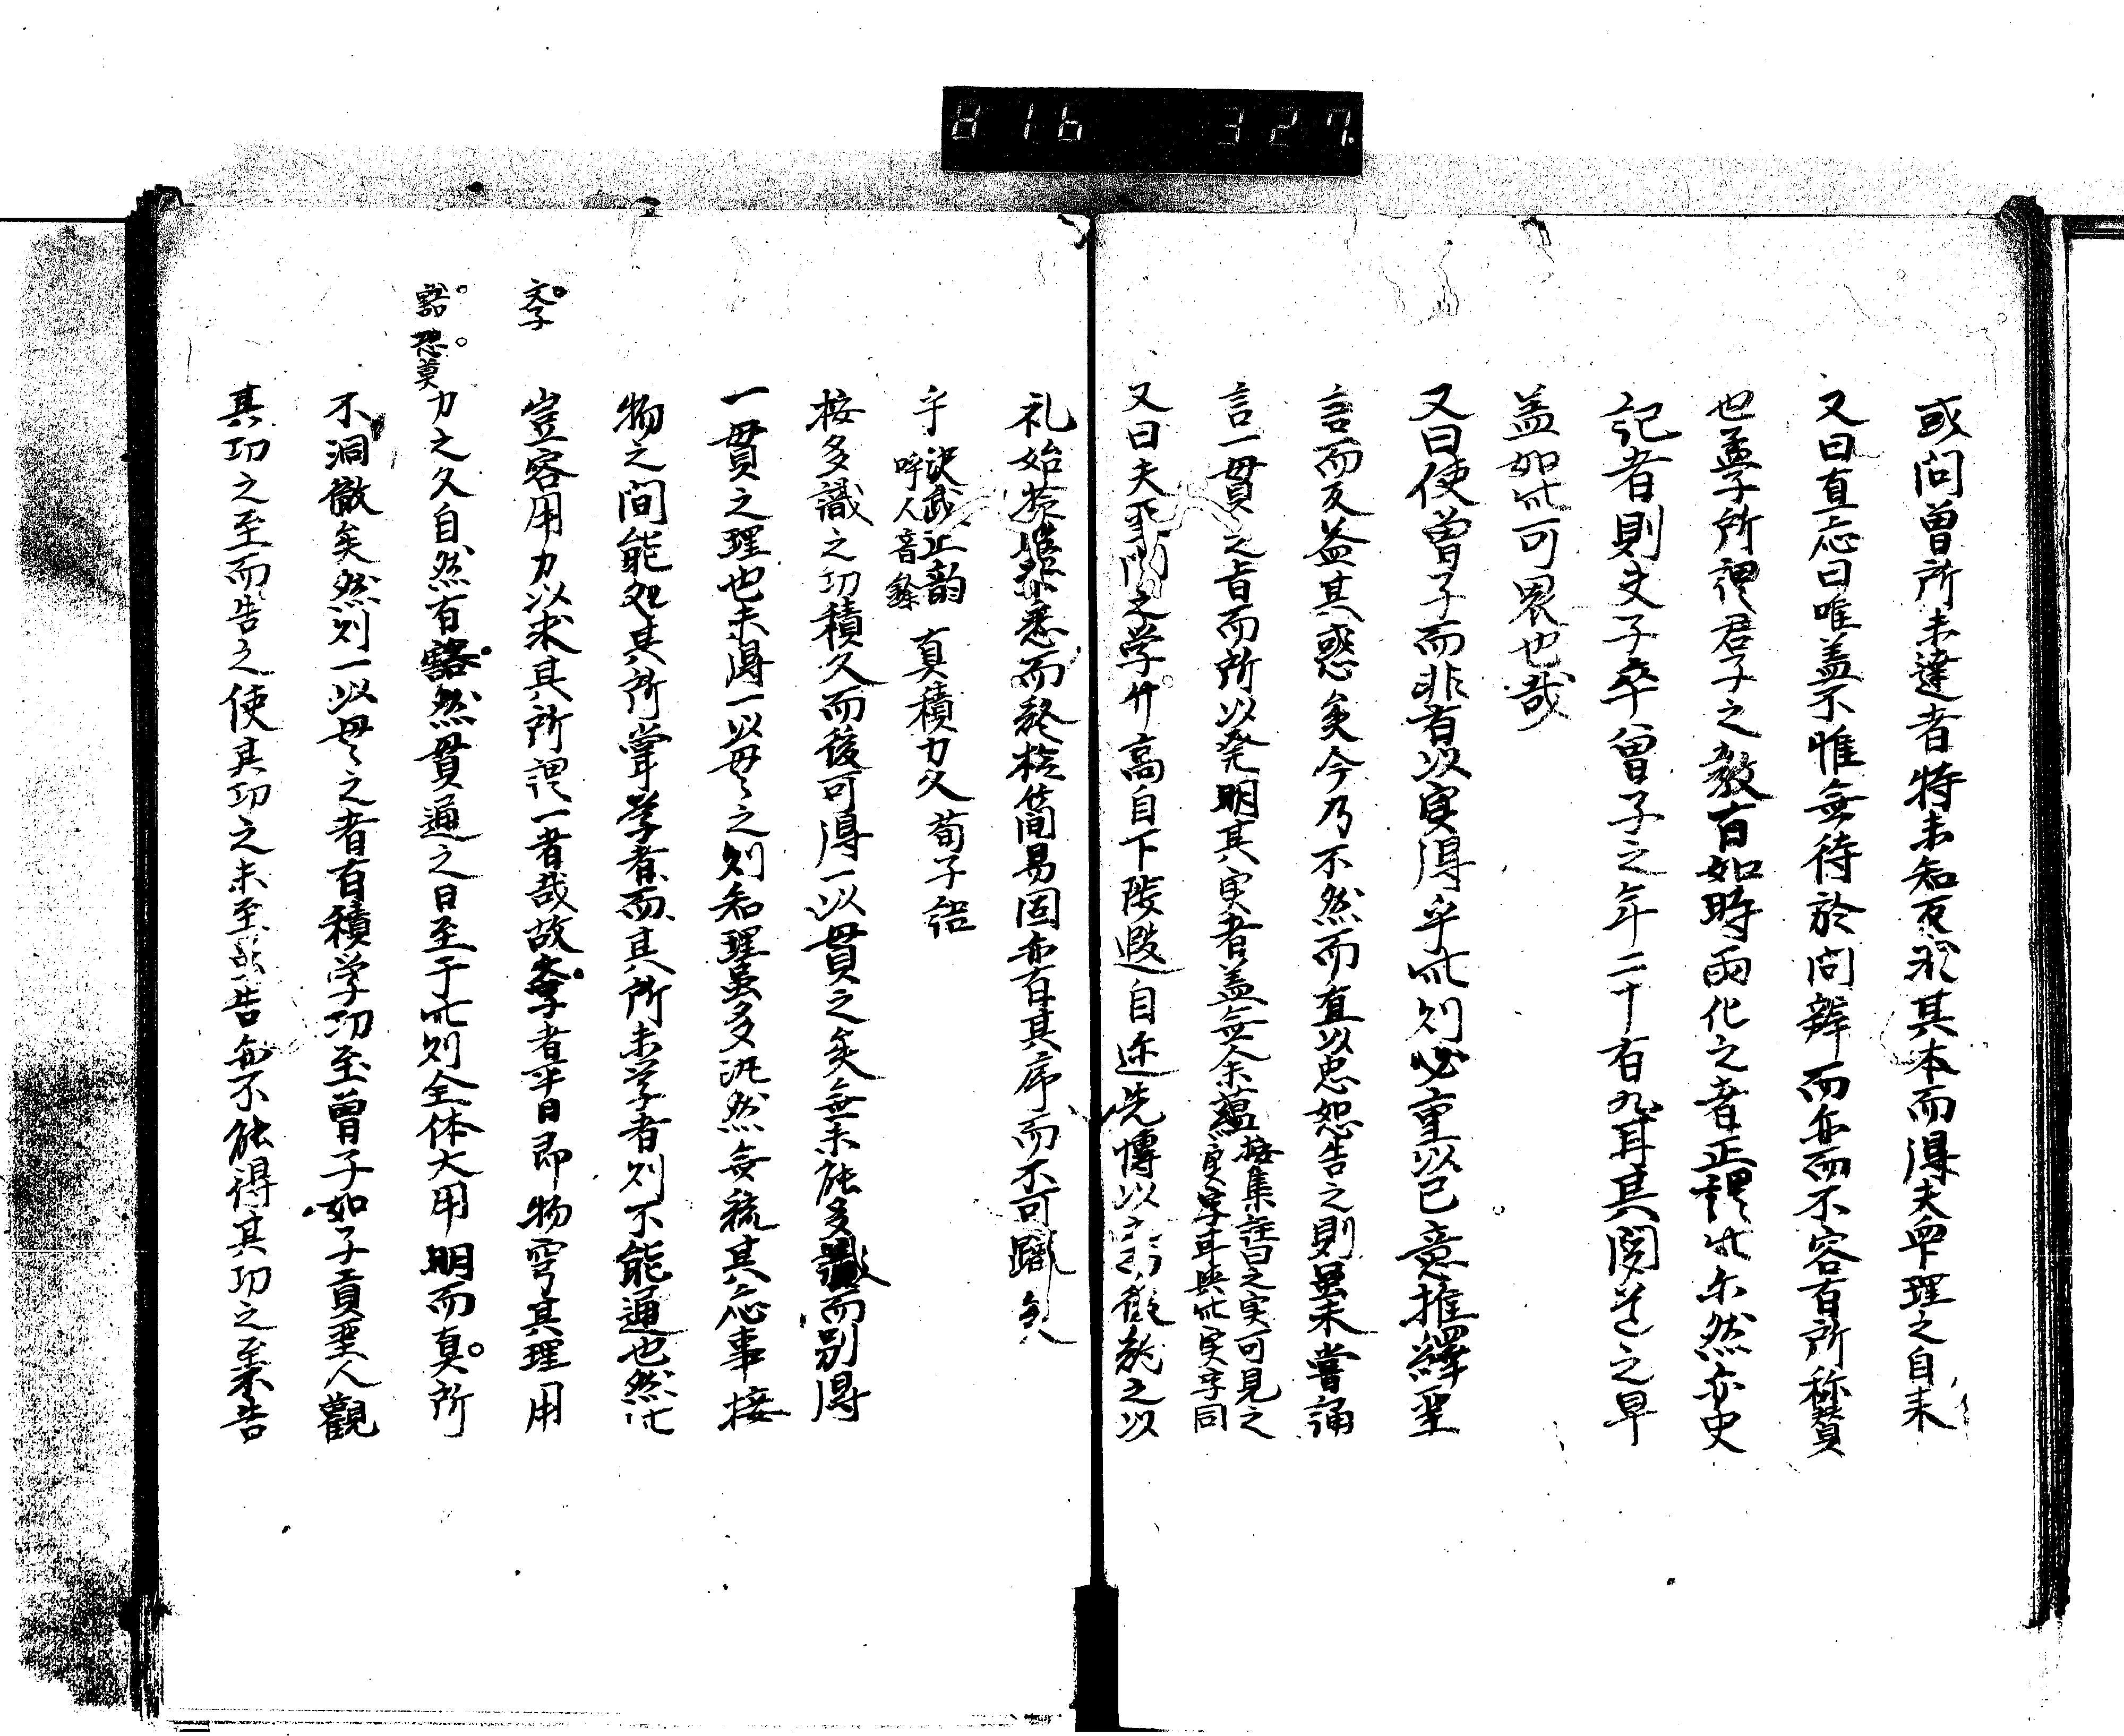 816 327
或問曽所未達者特未知夫其本而得夫衆理之自来
又曰直応曰唯盖不惟無待於問辨而亦而不容有所称賛
也孟子所謂君子之教有如時雨化之者正謂此尓然亦史
記者則丈子卒曽子之年二十有九耳其聞道之早
盖如此可畏也哉
又曰使曽子而非有以実得乎此则必重以己意推繹聖
言而反益其惑矣今乃不然而直以忠恕告之則虽未嘗誦
言一貫之旨而所以発明其実者盖無余蘊 按集註曰之実可見之
実字耳與此実字同
又曰夫聖門之学升高自下陟遐自迩先博以文而後教之以
礼始於 悉而終於簡易固亦有其序而不可躐矣
乎 沢武上韵
呼人音録 真積力久 荀子語
按多識之功積久而後可得一以貫之矣無未能多識而别得
一貫之理也未得一以毌之则知理虽多汎然無統其応事接
物之間能処其所嘗学者而其所未学者则不能通也然此
豈容用力以求其所謂一者哉故学者平日即物穹其理用
文子
力之久自然有豁然貫通之日至于此则全体大用明而真所
豁 恐莫
不洞徹矣然则一以毌之者百積学功至曽子如子貢聖人觀
其功之至而告之使其功之未至 告無不能得其功之至未告